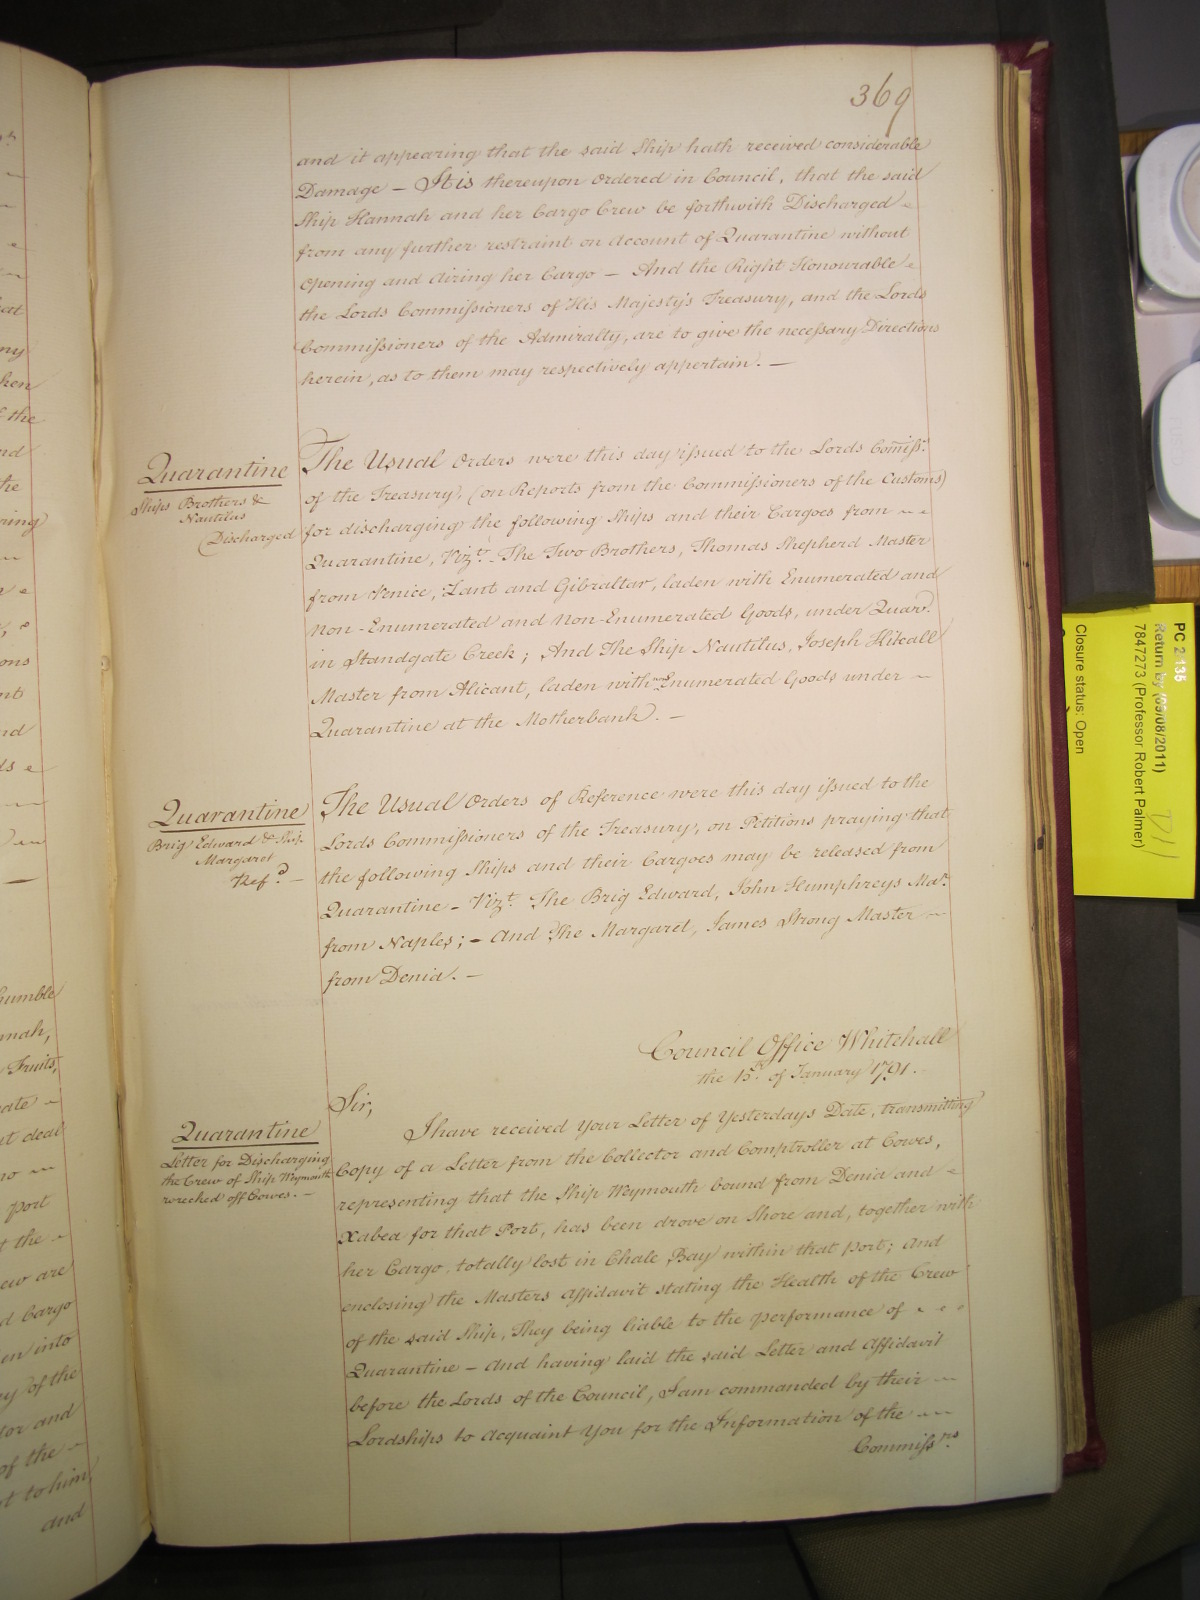 369
and it appearing that the said Ship hath received considerable
Damage – It is thereupon Ordered in Council, that the said
Ship Hannah and her Cargo Crew be forthwith Discharged
from any further restraint on Account of Quarantine without
Opening and Airing her Cargo – And the Right Honourable
the Lords Commissioners of His Majesty's Treasury, and the Lords
Commissioners of the Admiralty, are to give the necessary Directions
herein, as to them may respectively appertain. –
Quarantine
Ships Brothers &
Nautilus
Discharged
The Usual Orders were this day issued to the Lords Comiss.rs
of the Treasury, (on Reports from the Commissioners of the Customs)
for discharging the following Ships and their Cargoes from
Quarantine, Vizt. The Two Brothers, Thomas Shepherd Master
from Venice, Zant and Gibraltar, laden with Enumerated and
Non-Enumerated and Non-Enumerated Goods, under Quar.
in Standgate Creek; And The Ship Nautilus, Joseph
Master from Alicant, laden with non Enumerated Goods under
Quarantine at the Motherbank. –
Quarantine
Brig Edward & Ship
Margaret
Ref.d –
The Usual Orders of Reference were this day issued to the
Lords Commissioners of the Treasury, on Petitions praying that
the following Ships and their Cargoes may be released from
Quarantine – Vizt. The Brig Edward, John Humphreys Mar.
from Naples; – And The Margaret, James Strong Master
from Denia. –
Council Office Whitehall
the 15th. of January 1791.
Sir,
Quarantine
Letter for Discharging
the Crew of Ship Weymouth
wrecked off Cowes. –
I have received Your Letter of Yesterdays Date, transmitting
Copy of a Letter from the Collector and Comptroller at Cowes,
representing that the Ship Weymouth bound from Denia and
Xabea for that Port, has been drove on Shore and, together with
her Cargo, totally lost in Chale Bay within that Port; And
enclosing the Masters Affidavit stating the Health of the Crew
of the said Ship, They being liable to the performance of
Quarantine – And having laid the said Letter and Affidavit
before the Lords of the Council, I am commanded by their
Lordships to Acquaint You for the Information of the
Commiss.rs
PC 2 135
Return by (05/08/2011)
7847273 (Professor Robert Palmer)
Closure status: Open
D11
hen
the
nd
the
ring
ons
nt
nd
humble
nnah,
Fruits,
ut deal
port
t the
ew are
d Cargo
en into
of the
tor and
of the
t to him
and